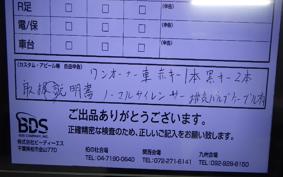 R足
(申告)
電/保
(申告)
車台
(申告)
(カスタム・アピール等 自由申告)
ワンオーナー車 赤キー1本 黒キー2本
取扱説明書 ノーマルサイレンサー 排気バルブケーブル有
ご出品ありがとうございます。
正確精密な検査のため、正しいご記入をお願い致します。
BDS
株式会社ビーディーエス
千葉県柏市金山770
柏の杜会場
TEL:04-7190-0640
関西会場
TEL:072-271-6141
九州会場
TEL:092-928-6150